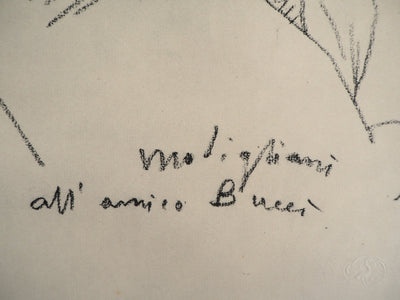 modigliani
all' amico Bucci